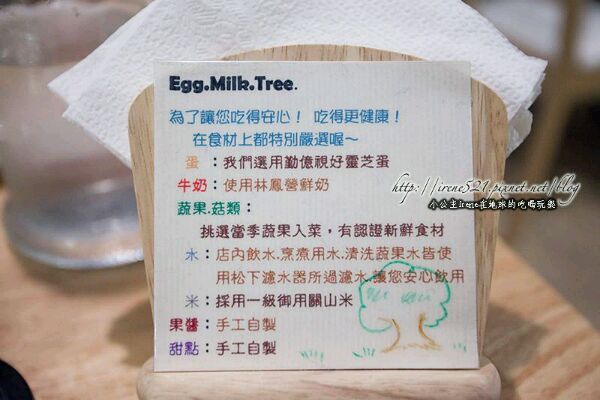 Egg.Milk.Tree.
為了讓您吃得安心！ 吃得更健康！
在食材上都特別嚴選喔～
蛋：我們選用勤億視好靈芝蛋
牛奶：使用林鳳營鮮奶
http://irene521.pixnet.net/blog
小公主irene在地球的吃喝玩樂
蔬果.菇類：
挑選當季蔬果入菜，有認證新鮮食材
水：店內飲水.烹煮用水.清洗蔬果水皆使
用松下濾水器所過濾水.讓您安心飲用
米：採用一級御用關山米
果醬：手工自製
甜點：手工自製